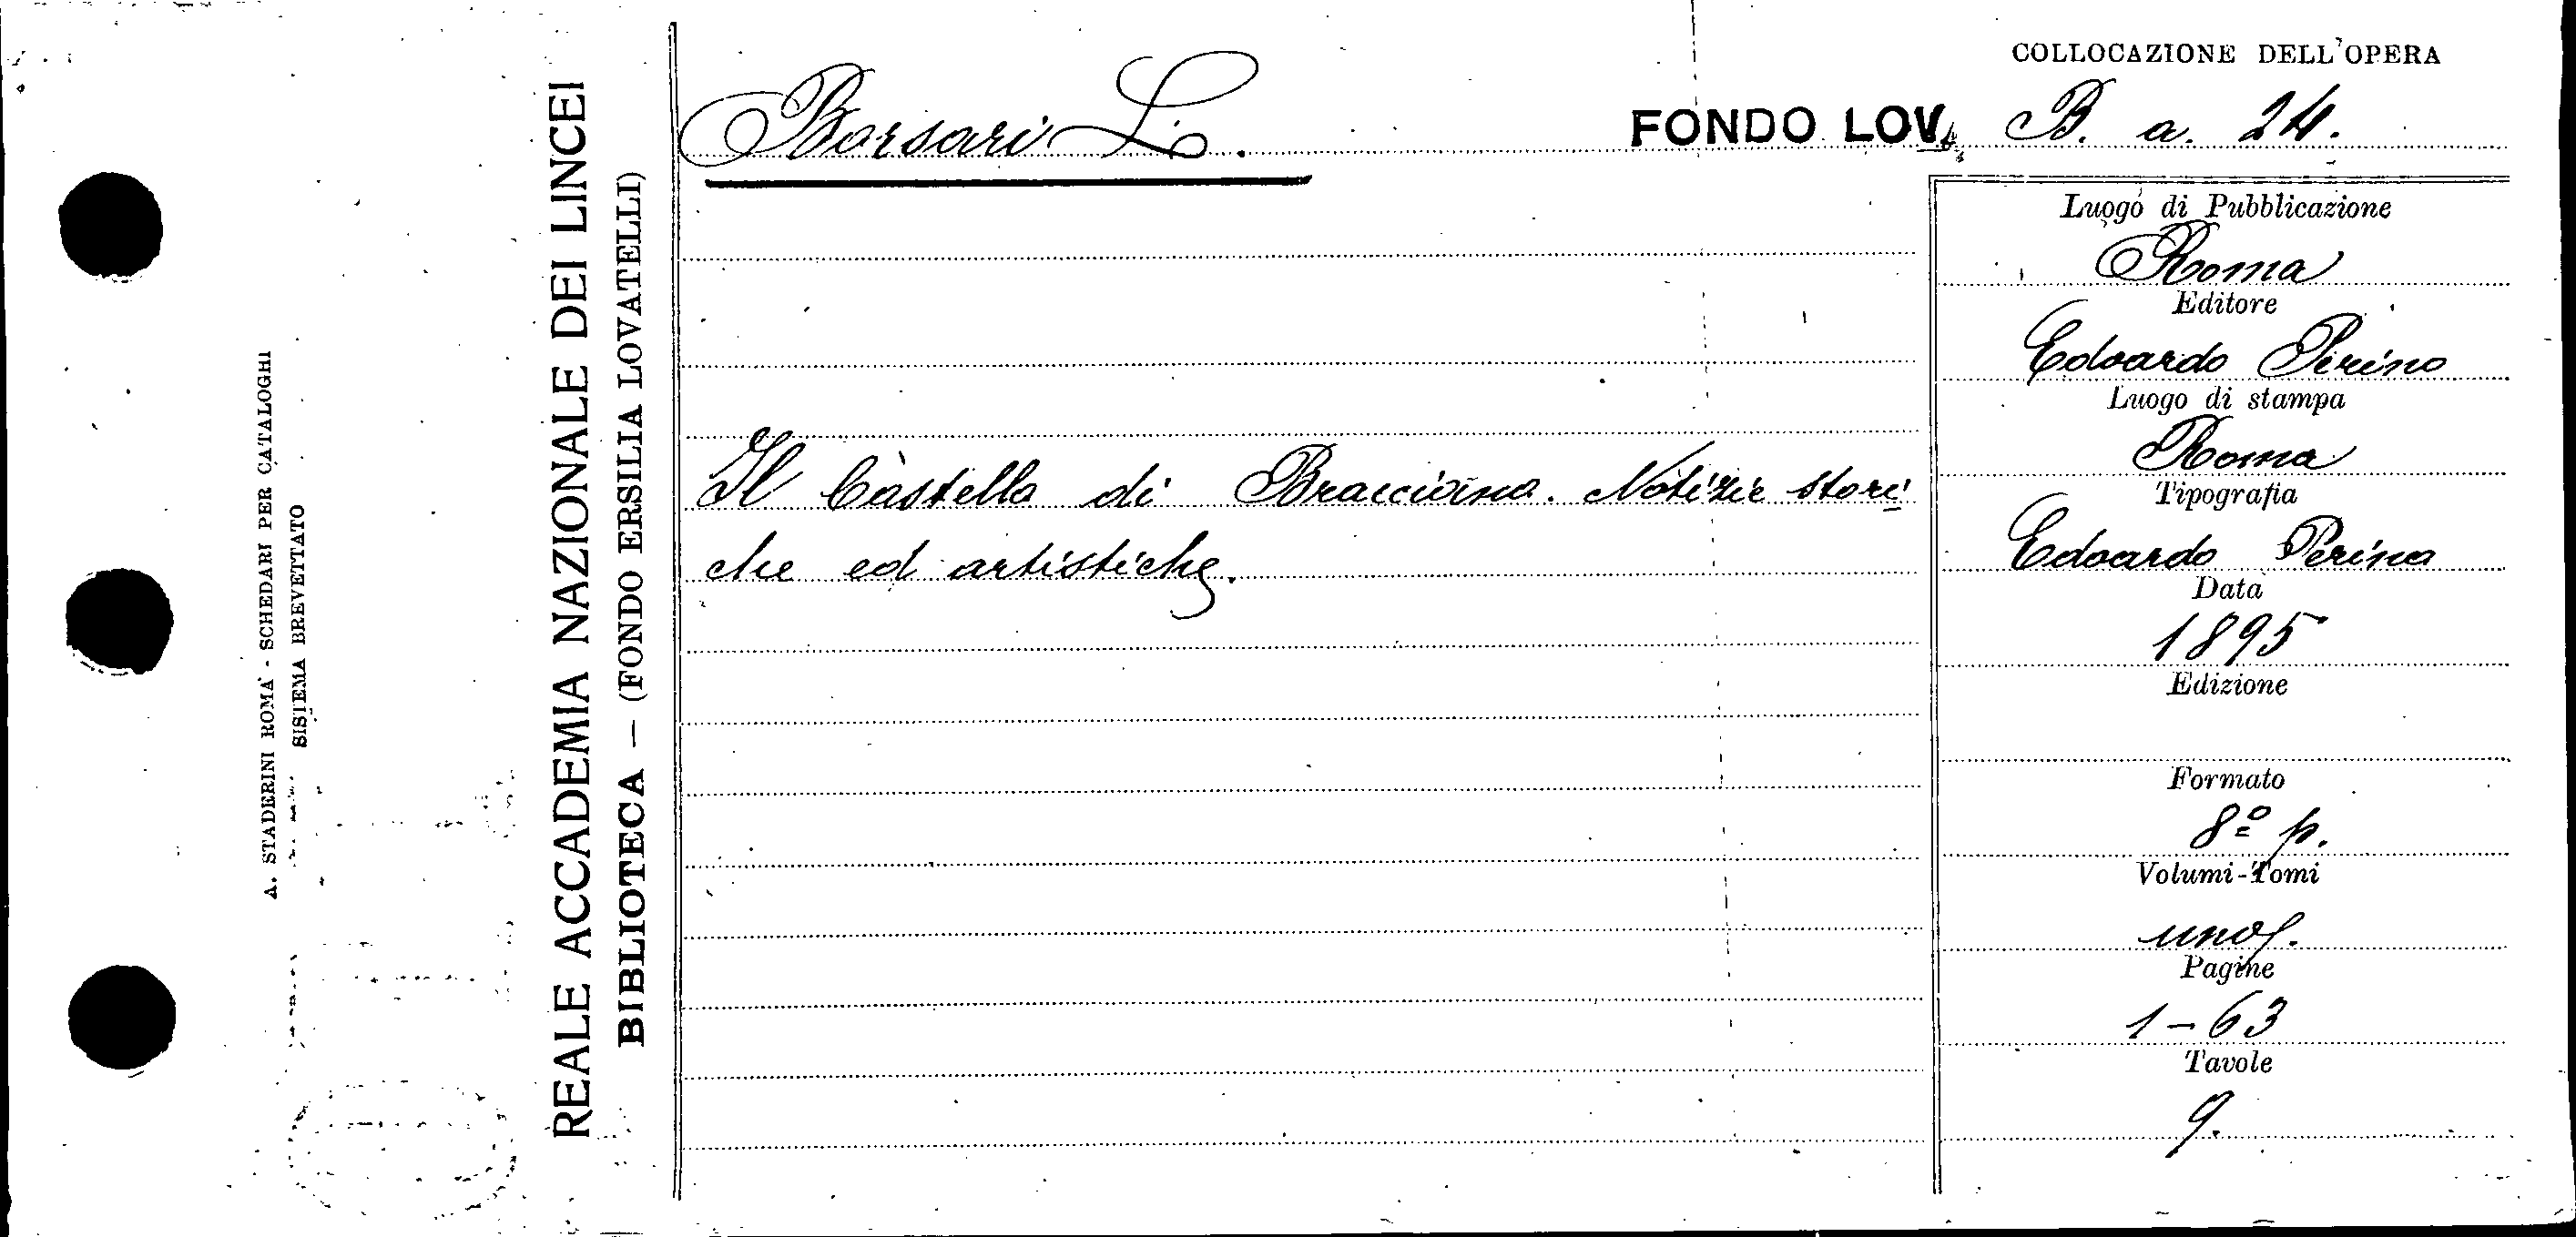 COLLOCAZIONE DELL'OPERA
Borsari L.
FONDO LOV. B. a. 24.
Il Castello di Bracciano. Notizie stori
che ed artistiche.
Luogo di Pubblicazione
Roma
Editore
Edoardo Perino
Luogo di stampa
Roma
Tipografia
Edoardo Perino
Data
1895
Edizione
Formato
8º p.
Volumi-Tomi
uno.
Pagine
1-63
Tavole
9.
REALE ACCADEMIA NAZIONALE DEI LINCEI
BIBLIOTECA — (FONDO ERSILIA LOVATELLI)
A. STADERINI ROMA - SCHEDARI PER CATALOGHI
SISTEMA BREVETTATO